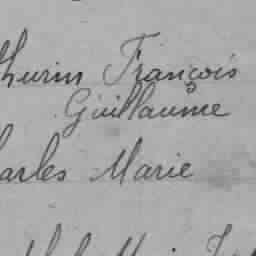 thurin François
Guillaume
harles Marie